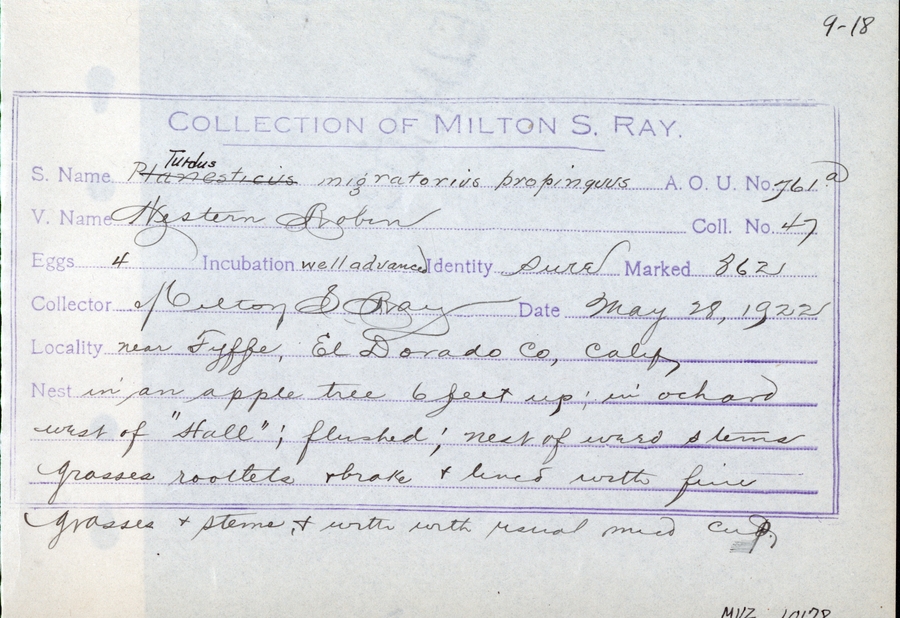 9-18
COLLECTION OF MILTON S. RAY.
Turdus
S. Name Planesticus migratorius propinquus A. O. U. No. 761.a
V. Name Western Robin Coll. No. 47
Eggs 4 Incubation well advanced Identity sure Marked 862
Collector Milton S Ray Date May 28, 1922
Locality near Fyffe, El Dorado Co, Calif,
Nest in an apple tree 6 feet up; in ochard
west of "Hall"; flushed; nest of weed stems
grasses rootlets + brake + lined with fine
grasses + stems, + with with usual mud cup,
MVZ 10178